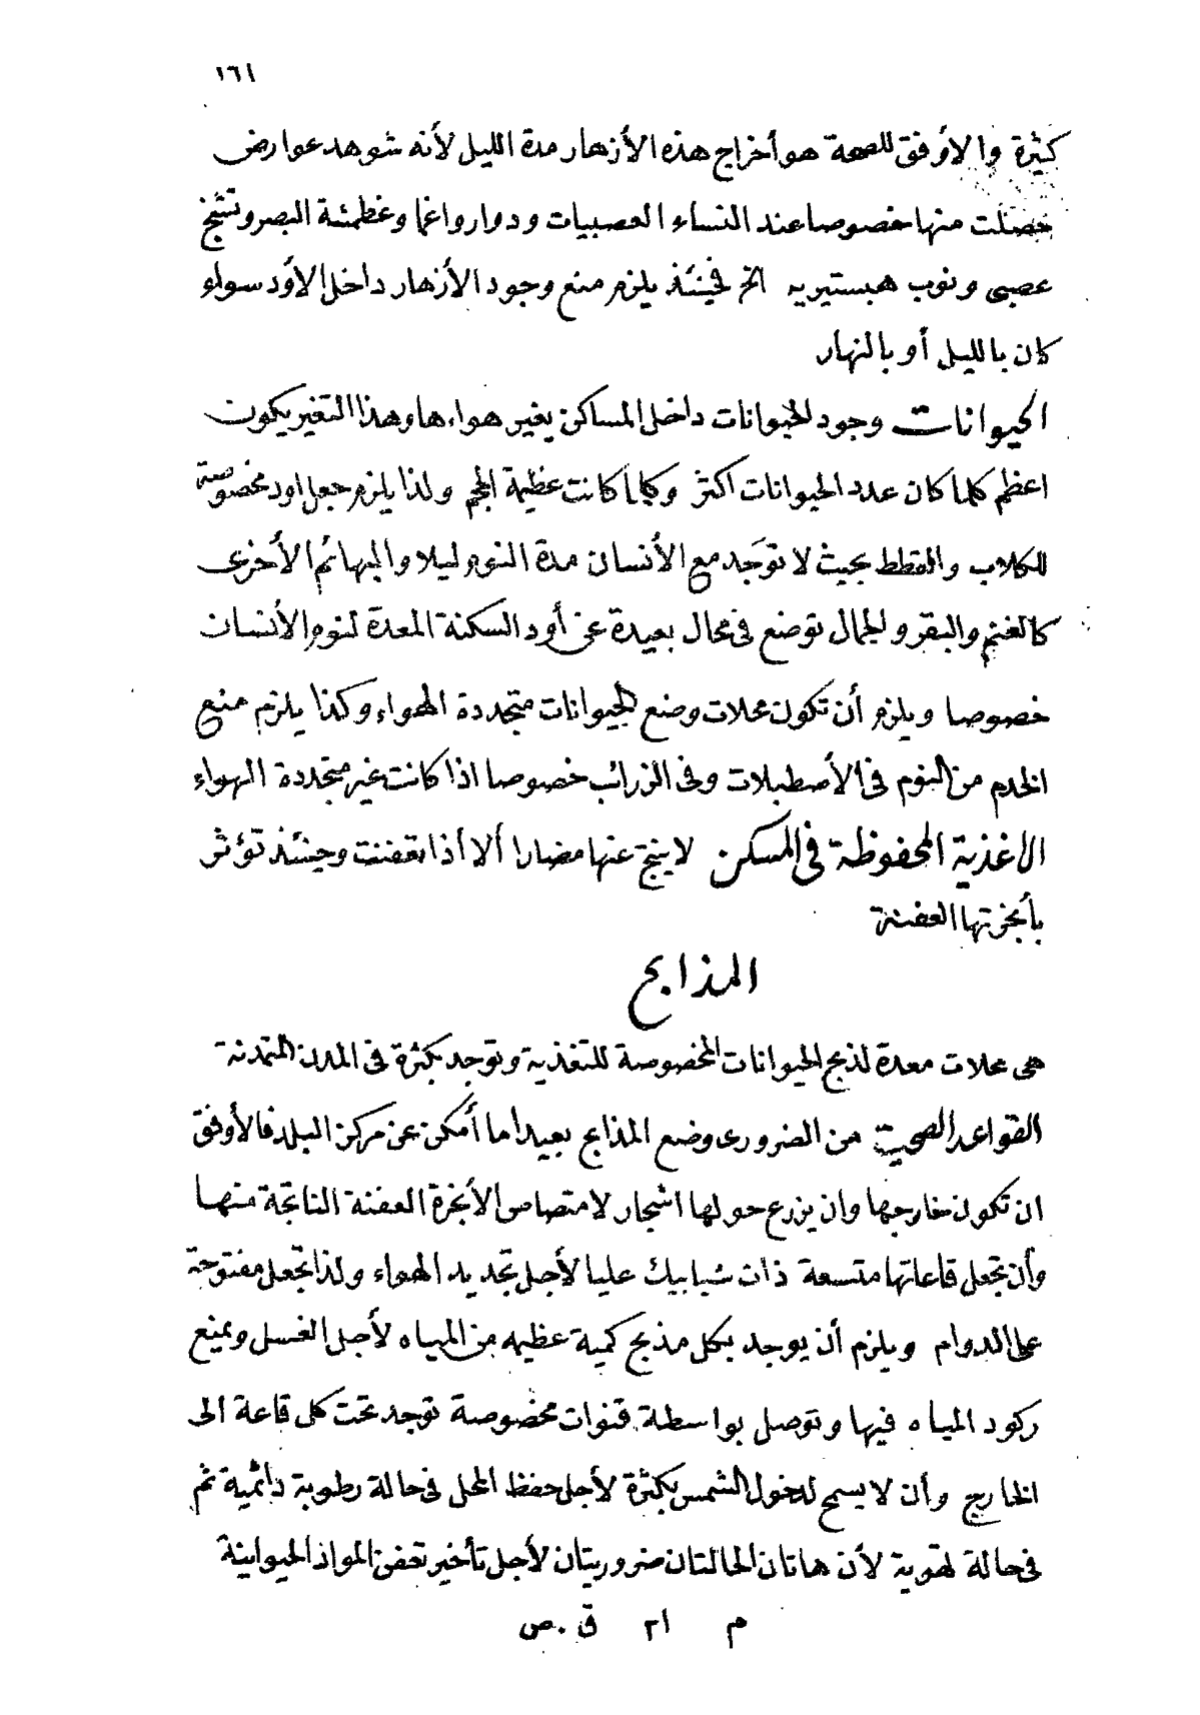 ١٦١
كثيرة والاوفق للصحة هو أخراج هذه الأزهار مدة الليل لأنه شوهد عوارض
حصلت منها خصوصا عند النساء العصبيات ودوار واغما وغطمشة البصر وتشنج
عصبى ونوب هيستيريه الخ فحينئذ يلزم منع وجود الأزهار داخل الاود سواء
كان بالليل أو بالنهار
الحيوانات وجود الحيوانات داخل المساكن يغير هواءها وهذا التغير يكون
اعظم كلما كان عدد الحيوانات اكثر وكلما كانت عظيمة الحجم ولذا يلزم جعل اود مخصوصة
للكلاب والقطط بحيث لا توَجد مع الأنسان مدة النوم ليلا والبهائم الأخرى
كالغنم والبقر والجمال توضع فى محال بعيدة عن أود السكنة المعدة لنوم الأنسان
خصوصا ويلزم أن تكون محلات وضع الحيوانات متجددة الهواء وكذا يلزم منع
الخدم من النوم فى الأصطبلات وفى الزرائب خصوصا اذا كانت غير متجددة الهواء
الاغذية المحفوظة فى المسكن لا ينتج عنها مضارا ألا أذا تعفنت وحينئذ تؤثر
بأبخرتها العفنة
المذابح
هى محلات معدة لذبح الحيوانات المخصوصة للتغذية وتوجد بكثرة فى المدن المتمدنة
القواعد الصحية من الضرورى وضع المذابح بعيدا ما أمكن عن مركز البلد فالأوفق
ان تكون خارجها وان يزرع حولها اشجار لامتصاص الأبخرة العفنة الناتجة منها
وأن تجعل قاعاتها متسعة ذات شبابيك عليا لأجل تجديد الهواء ولذا تجعل مفتوحة
على الدوام ويلزم أن يوجد بكل مذبح كمية عظيمه من المياه لأجل الغسل ويمنع
ركود المياه فيها وتوصل بواسطة قنوات مخصوصة توجد تحت كل قاعة الى
الخارج وأن لا يسمح لدخول الشمس بكثرة لأجل حفظ المحل فى حالة رطوبة دائمية ثم
فى حالة تهوية لأن هاتان الحالتان ضروريتان لأجل تأخير تعفن المواد الحيوانية
م ٢١ ق . ص